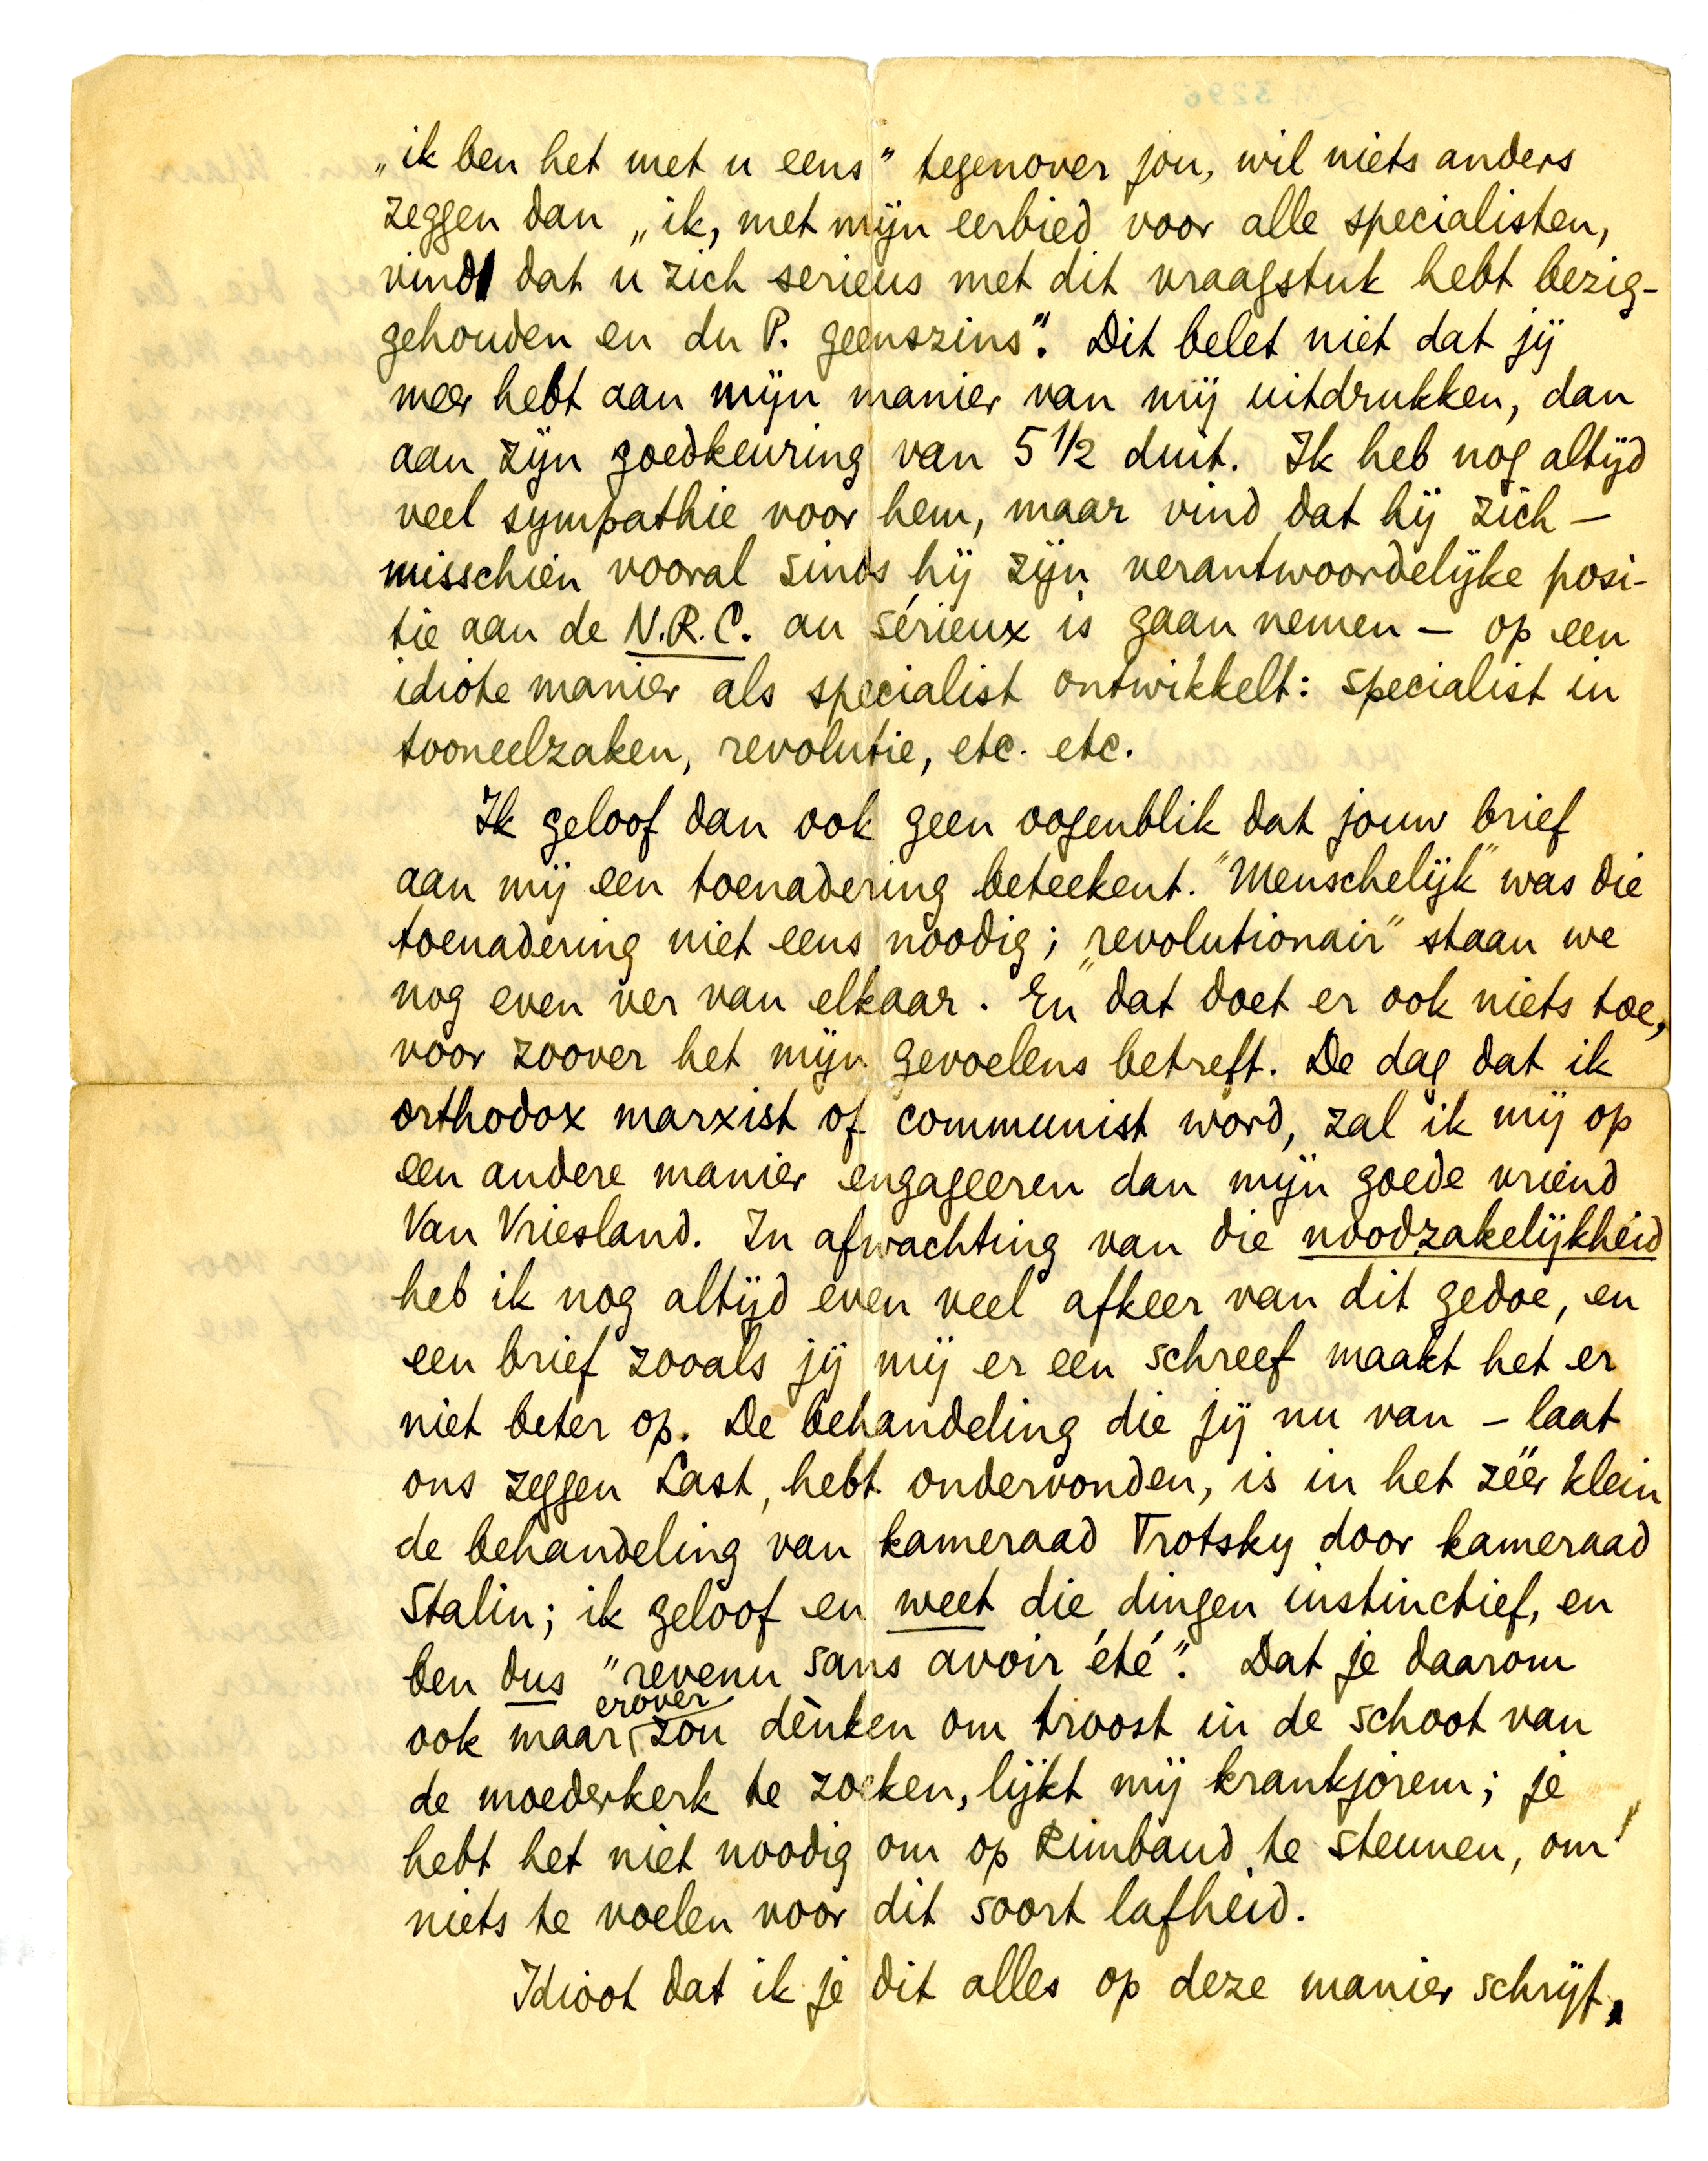 „ik ben het met u eens" tegenover jou, wil niets anders
zeggen dan „ik, met mijn eerbied voor alle specialisten,
vind dat u zich serieus met dit vraagstuk hebt bezig-
gehouden en du P. geenszins". Dit belet niet dat jij
meer hebt aan mijn manier van mij uitdrukken, dan
aan zijn goedkeuring van 5 1/2 duit. Ik heb nog altijd
veel sympathie voor hem, maar vind dat hij zich –
misschien vooral sinds hij zijn verantwoordelijke posi-
tie aan de N.R.C. au sérieux is gaan nemen – op een
idiote manier als specialist ontwikkelt: specialist in
tooneelzaken, revolutie, etc. etc.
Ik geloof dan ook geen oogenblik dat jouw brief
aan mij een toenadering beteekent. "Menschelijk" was die
toenadering niet eens noodig; "revolutionair" staan we
nog even ver van elkaar. En dat doet er ook niets toe,
voor zoover het mijn gevoelens betreft. De dag dat ik
orthodox marxist of communist word, zal ik mij op
een andere manier engageeren dan mijn goede vriend
Van Vriesland. In afwachting van die noodzakelijkheid
heb ik nog altijd even veel afkeer van dit gedoe, en
een brief zooals jij mij er een schreef maakt het er
niet beter op. De behandeling die jij nu van – laat
ons zeggen Last, hebt ondervonden, is in het zéér klein
de behandeling van kameraad Trotsky door kameraad
Stalin; ik geloof en weet die dingen instinctief, en
ben dus "revenu sans avoir été". Dat je daarom
erover
ook maar zou dènken om troost in de schoot van
de moederkerk te zoeken, lijkt mij krankjorem; je
hebt het niet noodig om op Rimbaud te steunen, om
niets te voelen voor dit soort lafheid.
Idioot dat ik je dit alles op deze manier schrijf,